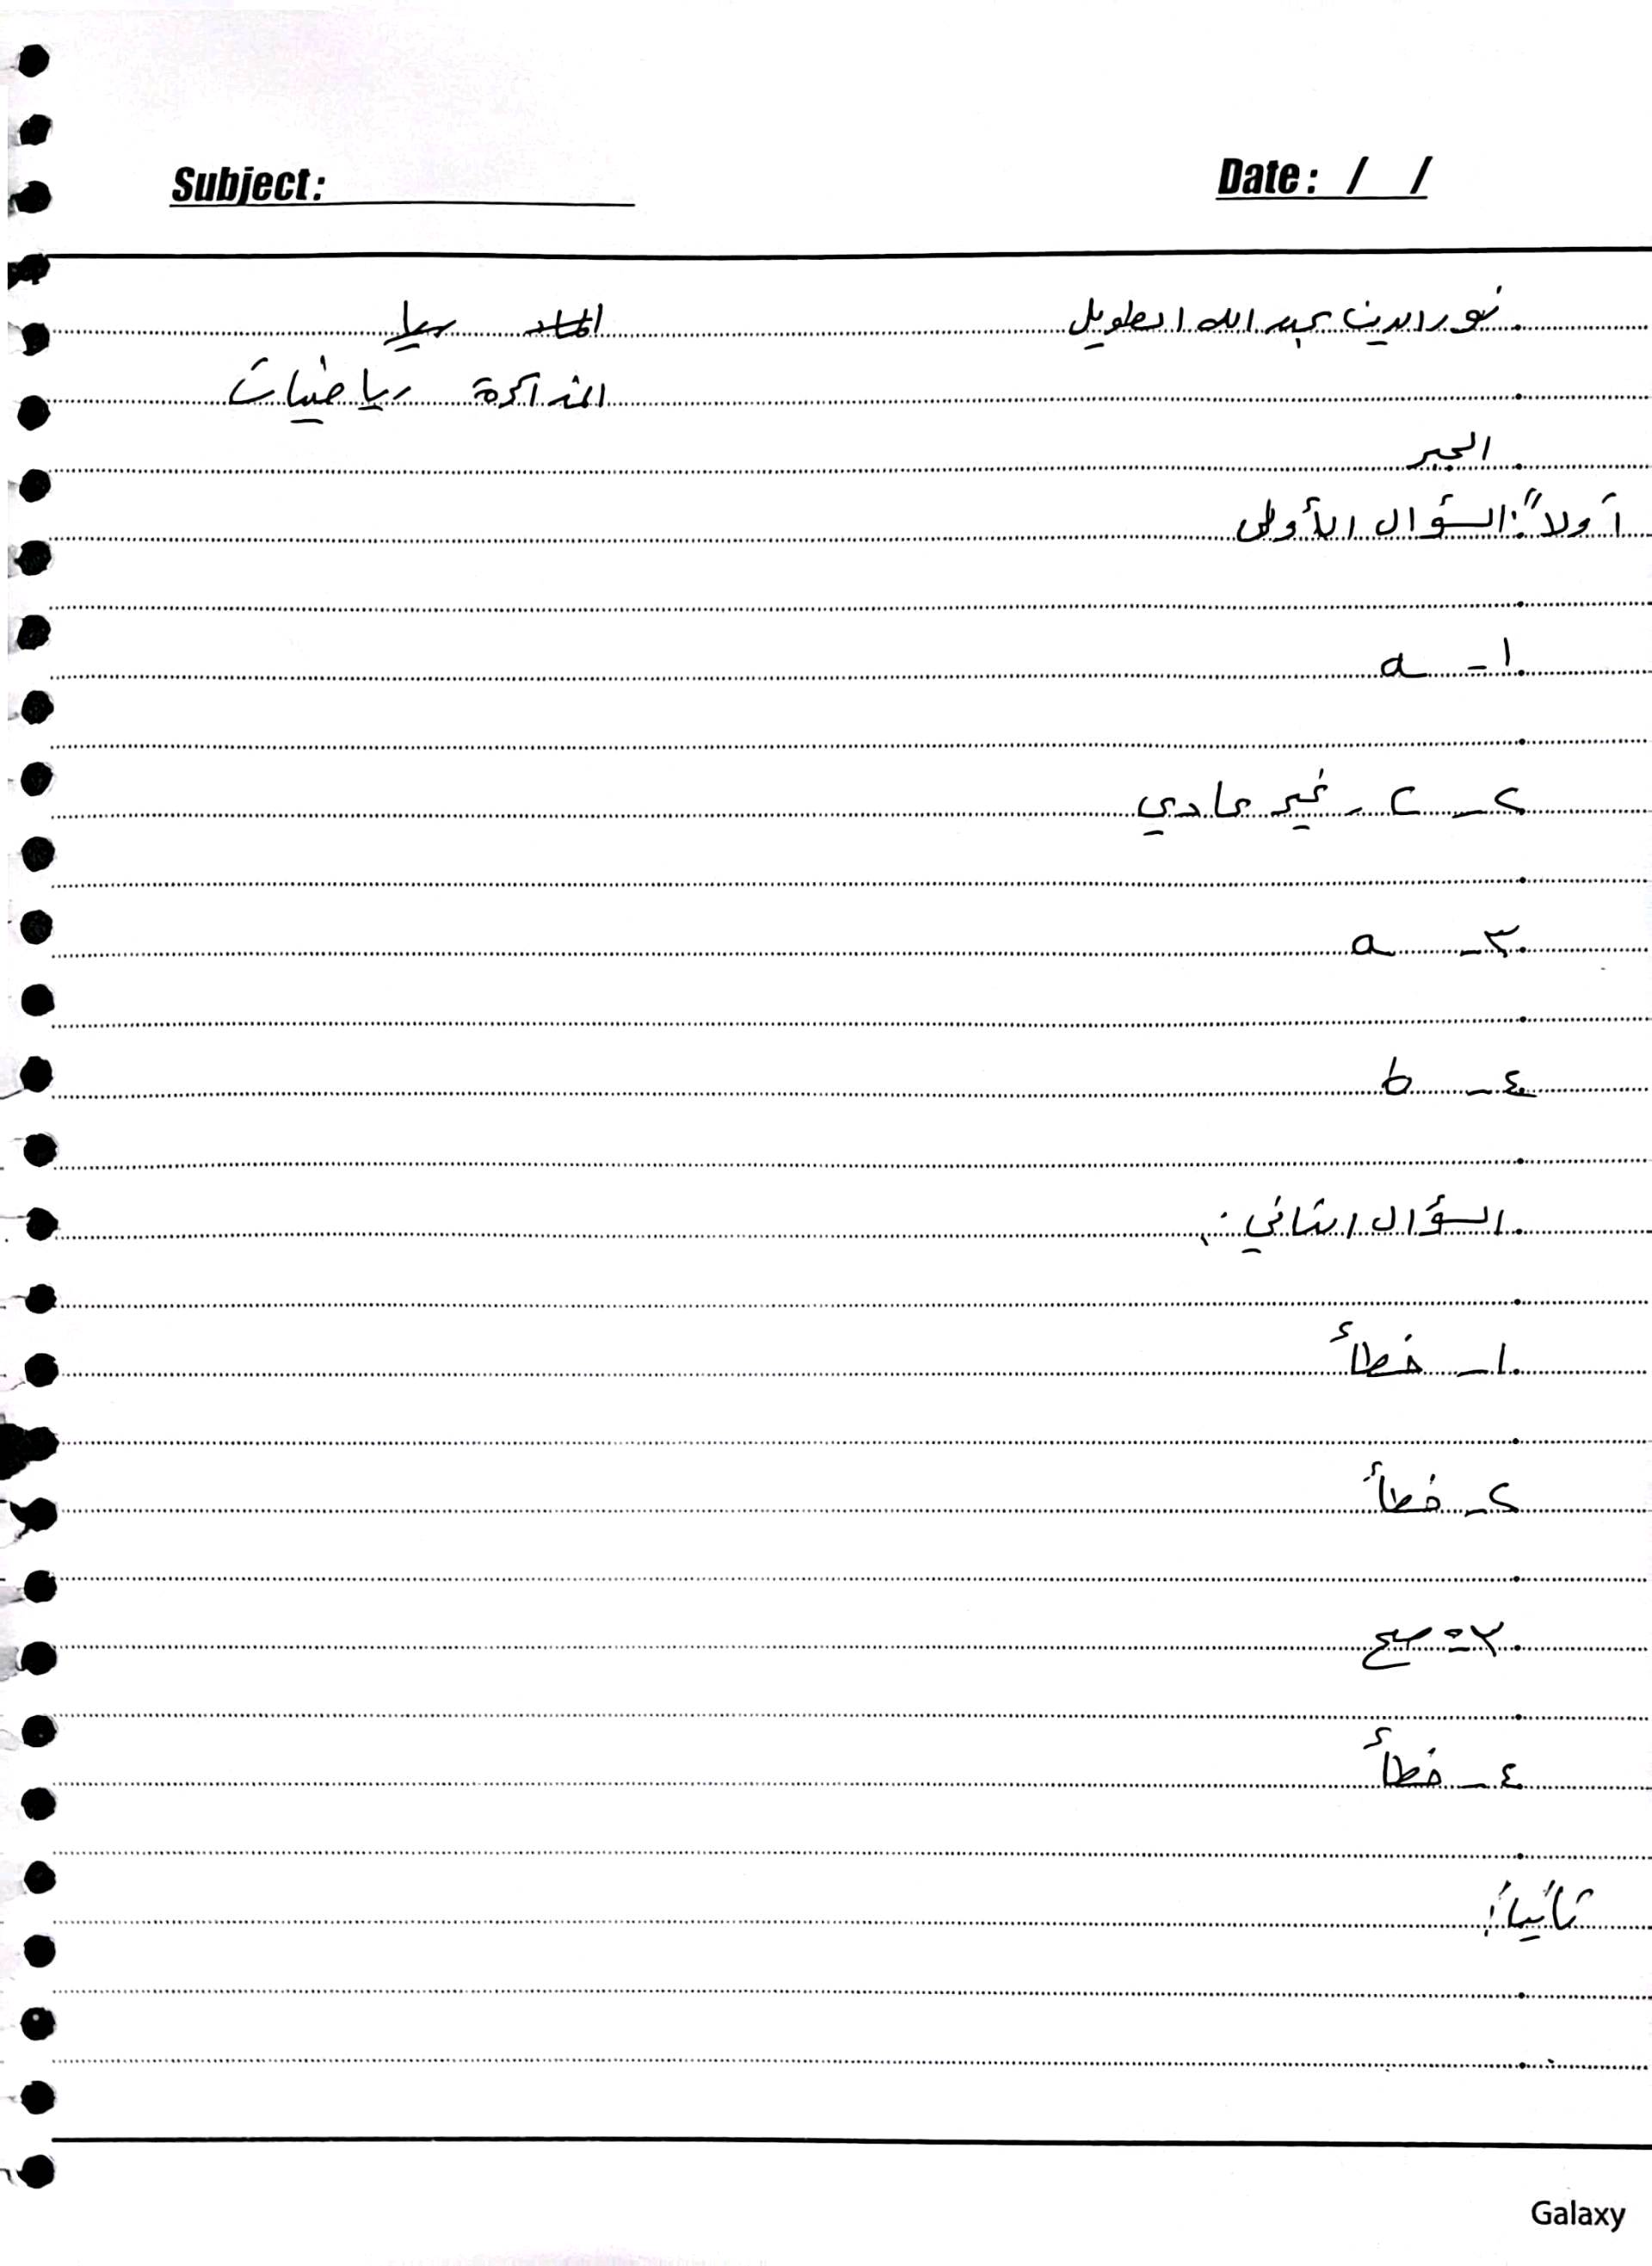 Subject: Date: / /
نور الدين عبد الله الطويل
المذاكرة رياضيات
الجبر
أولاً: السؤال الأول
١- a
٢- c - غير عادي
٣- a
٤- b
السؤال الثاني:
١- خطأ
٢- خطأ
٣- صح
٤- خطأ
ثانياً:
Galaxy